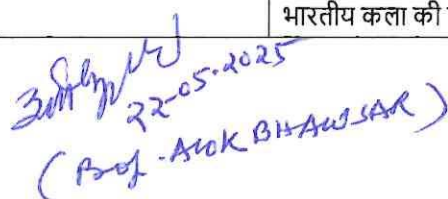 भारतीय कला की
22-05-2025
(Prof. ALOK BHAWSAR)